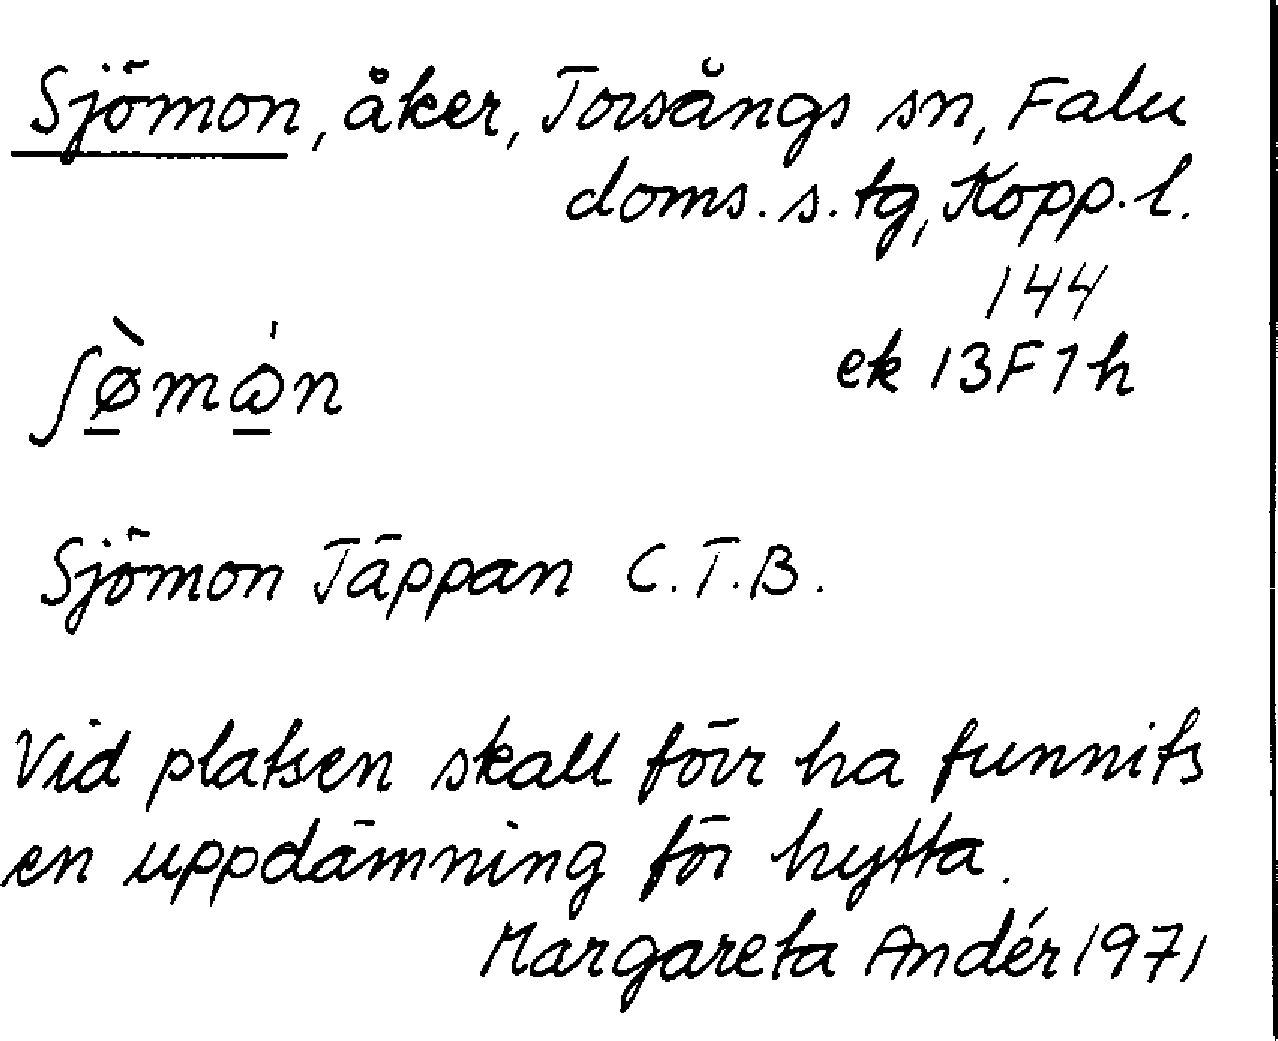 Sjömon, åker, Torsångs sn, Falu
doms. s. tg, Kopp. l.
144
ek 13F 7h
Sjömon Täppan C.T.B.
Vid platsen skall förr ha funnits
en uppdämning för hytta.
Margareta Andér 1971